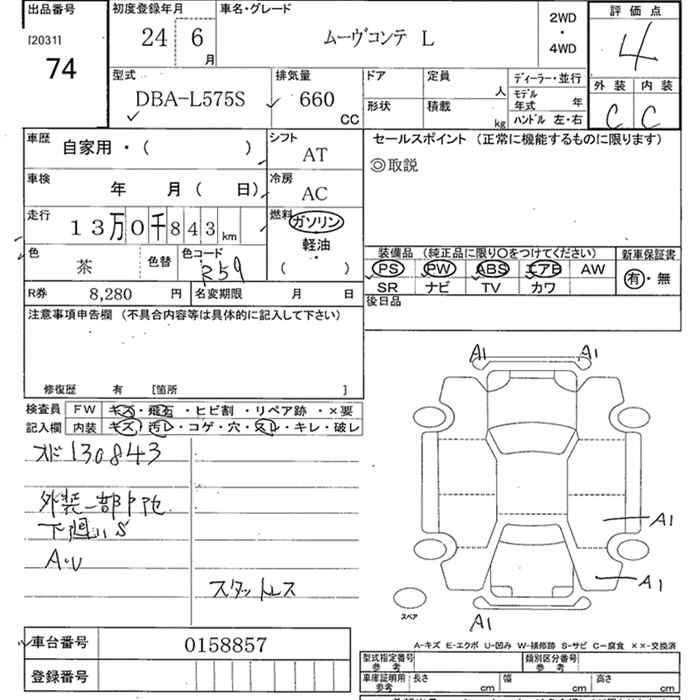 出品番号 初度登録年月 車名・グレード 評価点
[2031] 74 24 6月 ムーヴコンテ L 2WD・4WD 4
型式 排気量 ドア 定員 人 ディーラー・並行 外装 内装
DBA-L575S 660 CC 形状 積載 kg モデル年式 年 ハンドル 左・右 C C
車歴 自家用・( ) シフト AT セールスポイント (正常に機能するものに限ります)
◎取説
車検 年 月 ( 日) 冷房 AC
走行 13万0千843km 燃料 ガソリン 軽油 ( )
色 茶 色替 色コード R59
装備品 (純正品に限り〇をつけてください) 新車保証書
PS PW ABS エアB AW 有・無
SR ナビ TV カワ
R券 8,280 円 名変期限 月 日 後日品
注意事項申告欄 (不具合内容等は具体的に記入して下さい)
修復歴 有 [箇所 ]
検査員記入欄 FW キズ・飛石・ヒビ割・リペア跡・×要
内装 キズ・汚レ・コゲ・穴・スレ・キレ・破レ
130843
外装一部
下廻りS
A・U
スタットレス
A1 A1
A1
A1
A1
スペア
車台番号 0158857
登録番号
A-キズ E-エクボ U-凹み W-補修跡 S-サビ C-腐食 ××-交換済
型式指定番号 参考 類別区分番号 参考
車庫証明用 参考 長さ cm 幅 cm 高さ cm